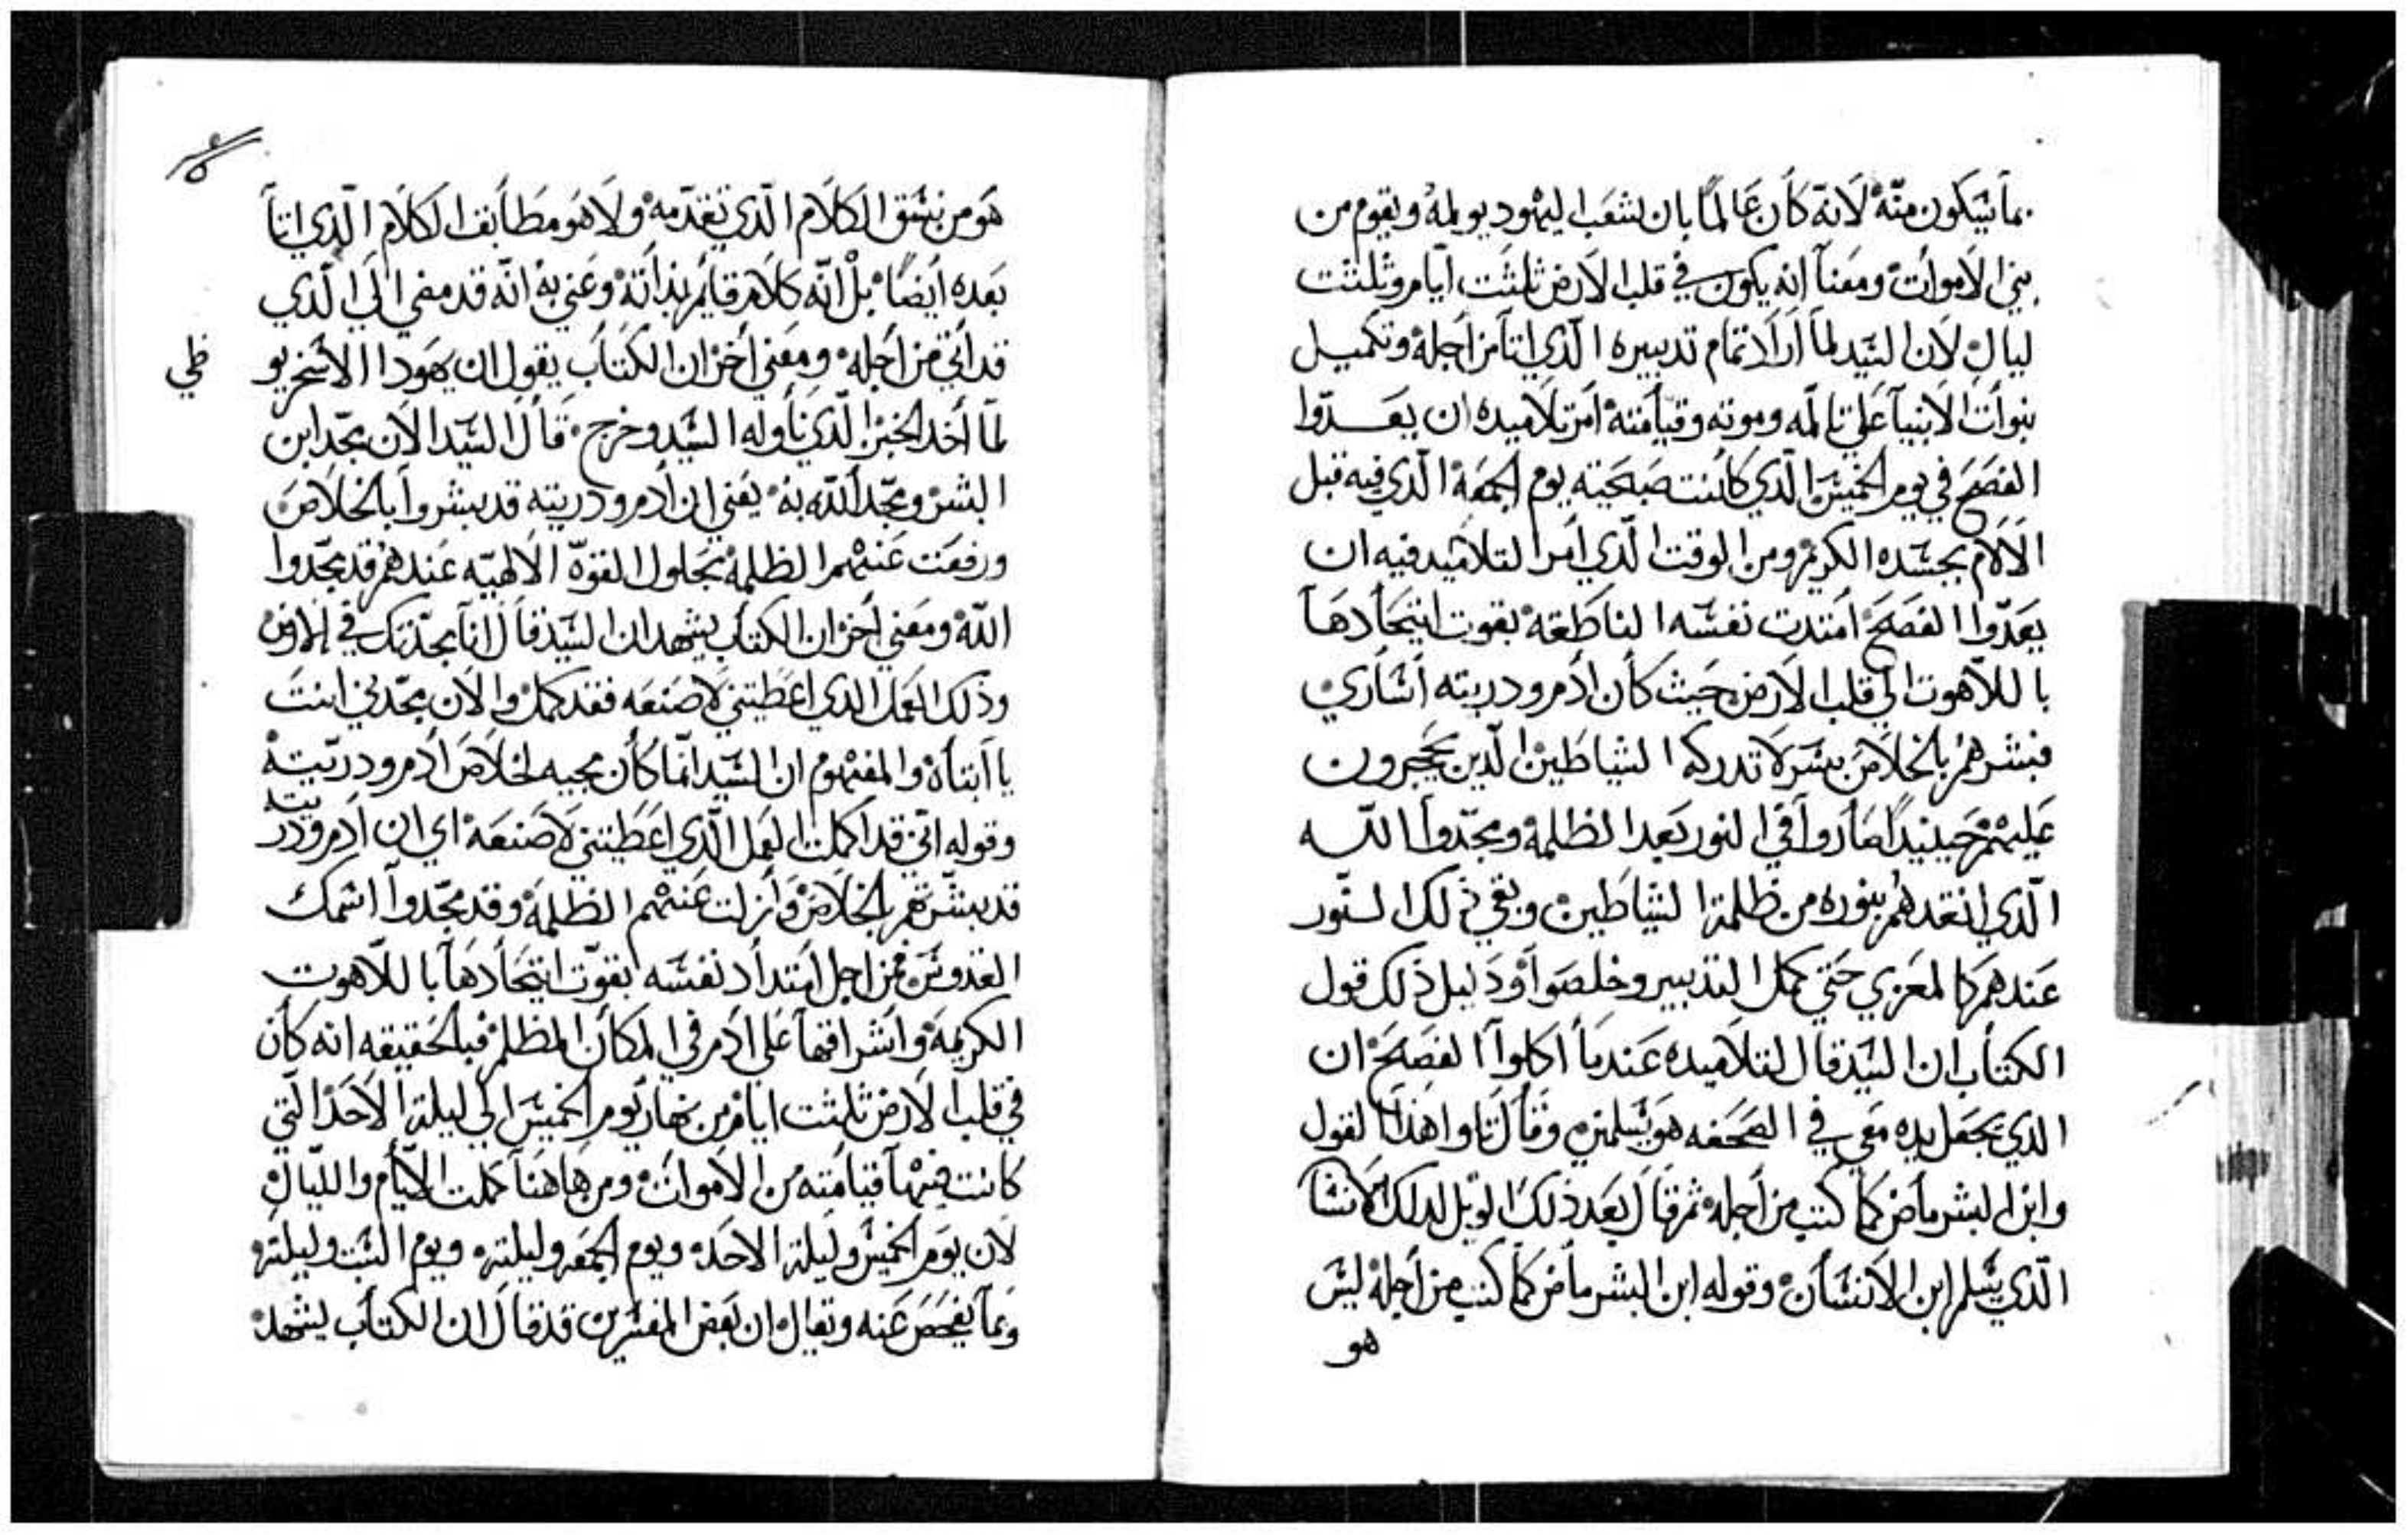 بما سيكون منه لانه كان عالماً بان شعب اليهود يولمه ويقوم من
بين الاموات ومعنا انه يكون في قلب الارض ثلثت ايام وثلثت
ليال لان السيد لما اراد تمام تدبيره الذي اتا من اجله وتكميل
نبوات الانبيا علي تالمه وموته وقيامته امر تلاميده ان يعدوا
الفصح في يوم الخميس الذي كانت صبحيته يوم الجمعه الذي فيه قبل
الالام بجسده الكريم ومن الوقت الذي امر التلاميد فيه ان
يعدوا الفصح امتدت نفسه الناطقه بقوت اتحادها
باللاهوت الي قلب الارض حيث كان ادم ودريته اساري
فبشرهم بالخلاص بسر لا تدركه الشياطين الدين يحجرون
عليهم حينيداً صاروا في النور بعد الظلمه ومجدوا الله
الدي انقدهم بنوره من ظلمة الشياطين وبقي ذلك النور
عندهم كالمعزي حتي كمل التدبير وخلصوا ودليل ذلك قول
الكتاب ان السيد قال لتلاميده عندما اكلوا الفصح ان
الدي يجعل يده معي في الصحفه هو يسلمني وقال تاوا هذا القول
وابن البشر ماض كما كتب من اجله ثم قال بعد ذلك الويل لدلك الانسان
الدي يسلم ابن الانسان وقوله ابن البشر ماض كما كتب من اجله ليس
هو
هو من نسق الكلام الدي تقدمه ولا هو مطابق الكلام الدي اتا
بعده ايضاً بل انه كلام قايم بذاته وعني به انه قد مضي الي الدي
قد اتي من اجله ومعني اخر ان الكتاب يقول ان يهودا الاسخريو
طي
لما اخد الخبز الدي ناوله السيد وخرج قال السيد الان مجد ابن
البشر ومجد الله به يعني ان ادم ودريته قد بشروا بالخلاص
ورفعت عنهم الظلمه بحلول القوة الالهيه عندهم قد مجدوا
الله ومعني اخر ان الكتاب يشهد ان السيد قال انا مجدتك في الارض
وذلك العمل الدي اعطيتني لاصنعه فقد كمل والان مجدني انت
يا ابتاه والمفهوم ان السيد انما كان مجيه لخلاص ادم ودريته
وقوله اني قد اكملت العمل الدي اعطيتني لاصنعه اي ان ادم ودريته
قد بشرتهم بالخلاص وازلت عنهم الظلمه وقد مجدوا اسمك
القدوس فمن اجل امتداد نفسه بقوت اتحادها باللاهوت
الكريمه واشراقها علي ادم في المكان المظلم فبالحقيقه انه كان
في قلب الارض ثلثت ايام من نهار يوم الخميس الي ليلة الاحد التي
كانت فيها قيامته من الاموات ومن هاهنا كملت الايام والليال
لان يوم الخميس وليلة الاحد ويوم الجمعه وليلته ويوم السبت وليلته
ومما يفحص عنه ويقال ان بعض المفسرين قد قال ان الكتاب يشهد